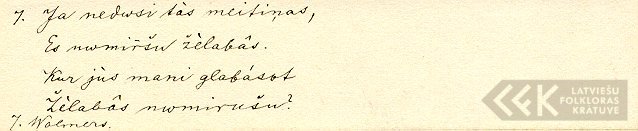 7. Ja nedwsi tàs meitiņas,
Es nwmiršu žèlabâs.
Kur jùs mani glabásot
Žèlabâs nwmirušu?
7. Wolmers.
LATVIEŠU
FOLKLORAS
KRĀTUVE